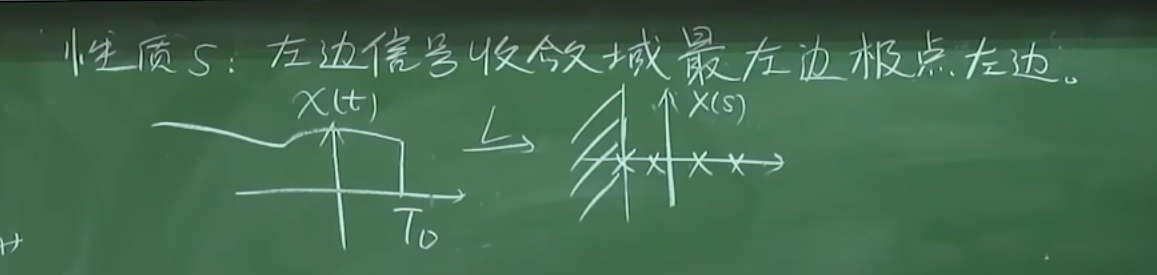 性质5:左边信号收敛域最左边极点左边。
x(t) L X(s)
T₀